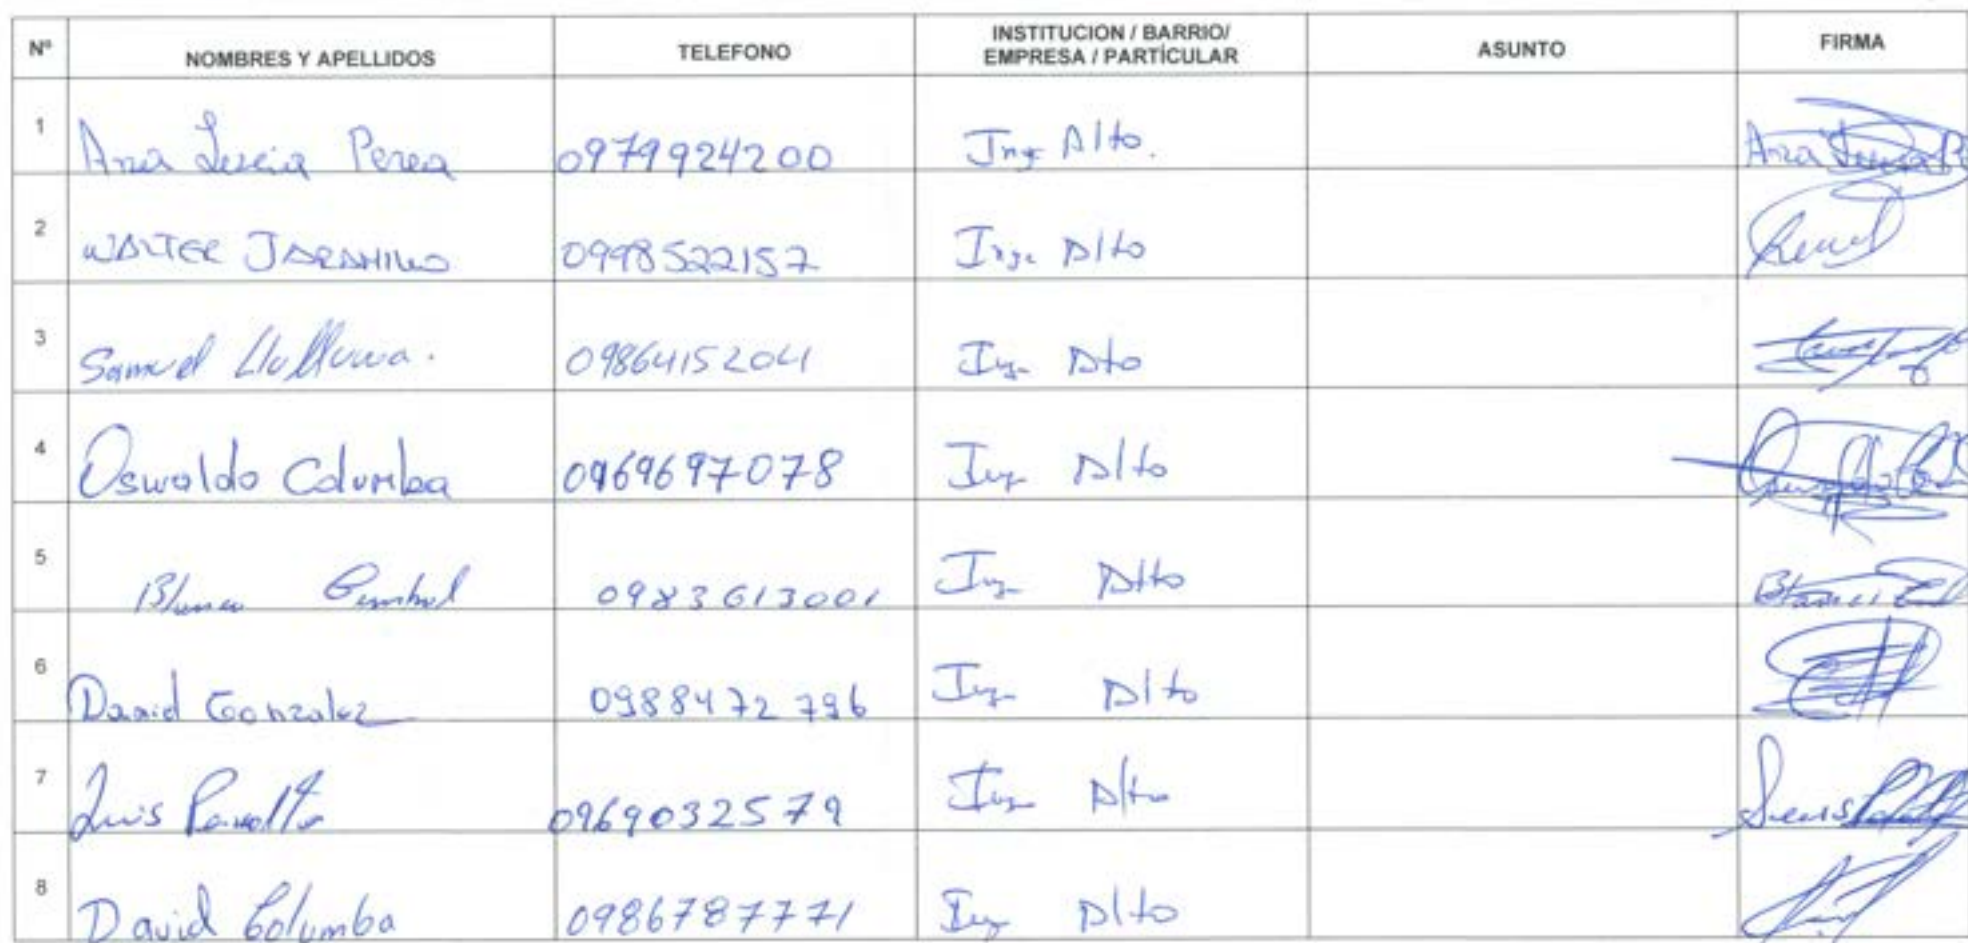 Nº NOMBRES Y APELLIDOS TELEFONO INSTITUCION / BARRIO/ EMPRESA / PARTÍCULAR ASUNTO FIRMA
1 Ana Lucia Perea 0979924200 Ing Alto. Ana Lucia P
2 WALTER JARAMILLO 0998522157 Ing. Alto
3 Samuel 0986415204 Ing Alto
4 Oswaldo Columba 0969697078 Ing Alto
5 Blanca 0983613001 Ing Alto Blanca
6 David Gonzalez 0988472796 Ing Alto
7 Luis 0969032579 Ing Alto Luis
8 David Columba 0986787771 Ing Alto